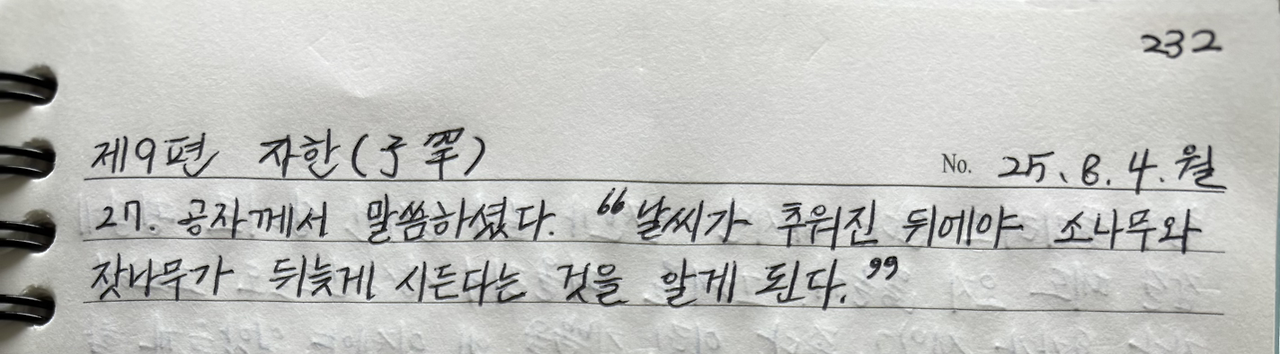 232
제9편 자한(子罕)
No. 25. 8. 4. 월
27. 공자께서 말씀하셨다. "날씨가 추워진 뒤에야 소나무와
잣나무가 뒤늦게 시든다는 것을 알게 된다."